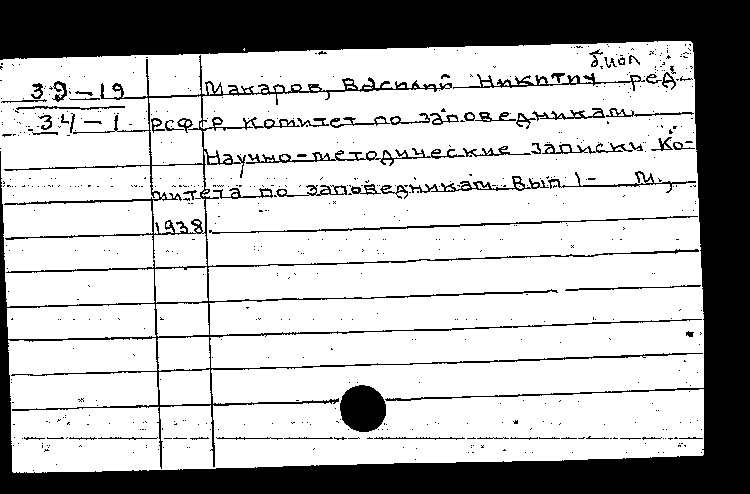 биол
39-19 Макаров, Василий Никитич ред.
34-1 РСФСР. Комитет по заповедникам.
Научно-методические записки Ко-
митета по заповедникам. Вып. 1- М.,
1938.